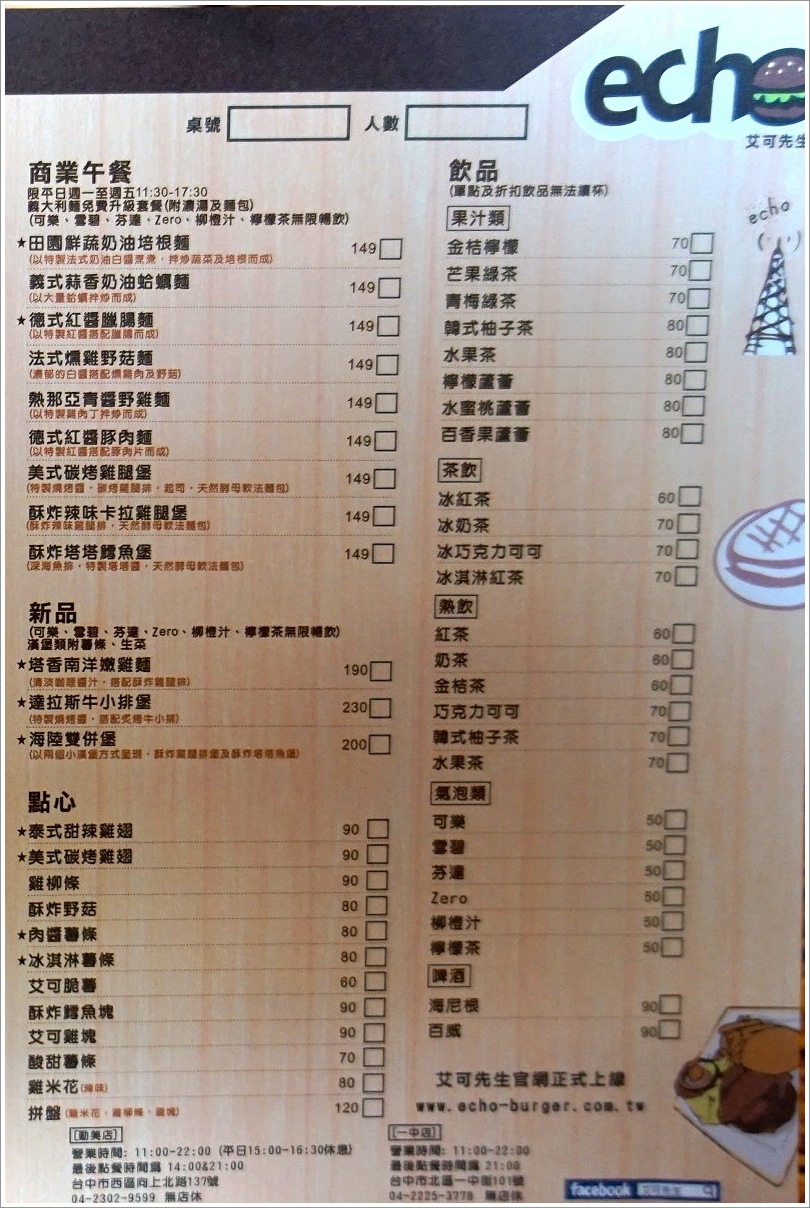 echo
艾可先生
桌號
人數
商業午餐
限平日週一至週五11:30-17:30
義大利麵免費升級套餐(附濃湯及麵包)
(可樂、雪碧、芬達、Zero、柳橙汁、檸檬茶無限暢飲)
★田園鮮蔬奶油培根麵 149
(以特製法式奶油白醬烹煮,拌炒蔬菜及培根而成)
義式蒜香奶油蛤蠣麵 149
(以大量蛤蠣拌炒而成)
★德式紅醬臘腸麵 149
(以特製紅醬搭配臘腸而成)
法式燻雞野菇麵 149
(濃郁的白醬搭配燻雞肉及野菇)
熱那亞青醬野雞麵 149
(以特製雞肉丁拌炒而成)
德式紅醬豚肉麵 149
(以特製紅醬搭配豚肉片而成)
美式碳烤雞腿堡 149
(特製燒烤醬,碳烤雞腿排,起司,天然酵母軟法麵包)
酥炸辣味卡拉雞腿堡 149
(酥炸辣味雞腿排,天然酵母軟法麵包)
酥炸塔塔鱈魚堡 149
(深海魚排,特製塔塔醬,天然酵母軟法麵包)
新品
(可樂、雪碧、芬達、Zero、柳橙汁、檸檬茶無限暢飲)
漢堡類附薯條、生菜
★塔香南洋嫩雞麵 190
(清淡咖哩醬汁,搭配酥炸雞腿排)
★達拉斯牛小排堡 230
(特製燒烤醬,搭配炙烤牛小排)
★海陸雙併堡 200
(以兩個小漢堡方式呈現,酥炸雞腿排堡及酥炸塔塔魚堡)
點心
★泰式甜辣雞翅 90
★美式碳烤雞翅 90
雞柳條 90
酥炸野菇 80
★肉醬薯條 80
★冰淇淋薯條 80
艾可脆薯 60
酥炸鱈魚塊 90
艾可雞塊 90
酸甜薯條 70
雞米花(辣味) 80
拼盤(雞米花,雞柳條,雞塊) 120
[勤美店]
營業時間: 11:00-22:00 (平日15:00-16:30休息)
最後點餐時間為 14:00&21:00
台中市西區向上北路137號
04-2302-9599 無店休
飲品
(單點及折扣飲品無法續杯)
果汁類
金桔檸檬 70
芒果綠茶 70
青梅綠茶 70
韓式柚子茶 80
水果茶 80
檸檬蘆薈 80
水蜜桃蘆薈 80
百香果蘆薈 80
茶飲
冰紅茶 60
冰奶茶 70
冰巧克力可可 70
冰淇淋紅茶 70
熱飲
紅茶 60
奶茶 60
金桔茶 60
巧克力可可 70
韓式柚子茶 70
水果茶 70
氣泡類
可樂 50
雪碧 50
芬達 50
Zero 50
柳橙汁 50
檸檬茶 50
啤酒
海尼根 90
百威 90
艾可先生官網正式上線
www.echo-burger.com.tw
[一中店]
營業時間: 11:00-22:00
最後點餐時間為 21:00
台中市北區一中街101號
04-2225-3778 無店休
echo
facebook 艾可先生